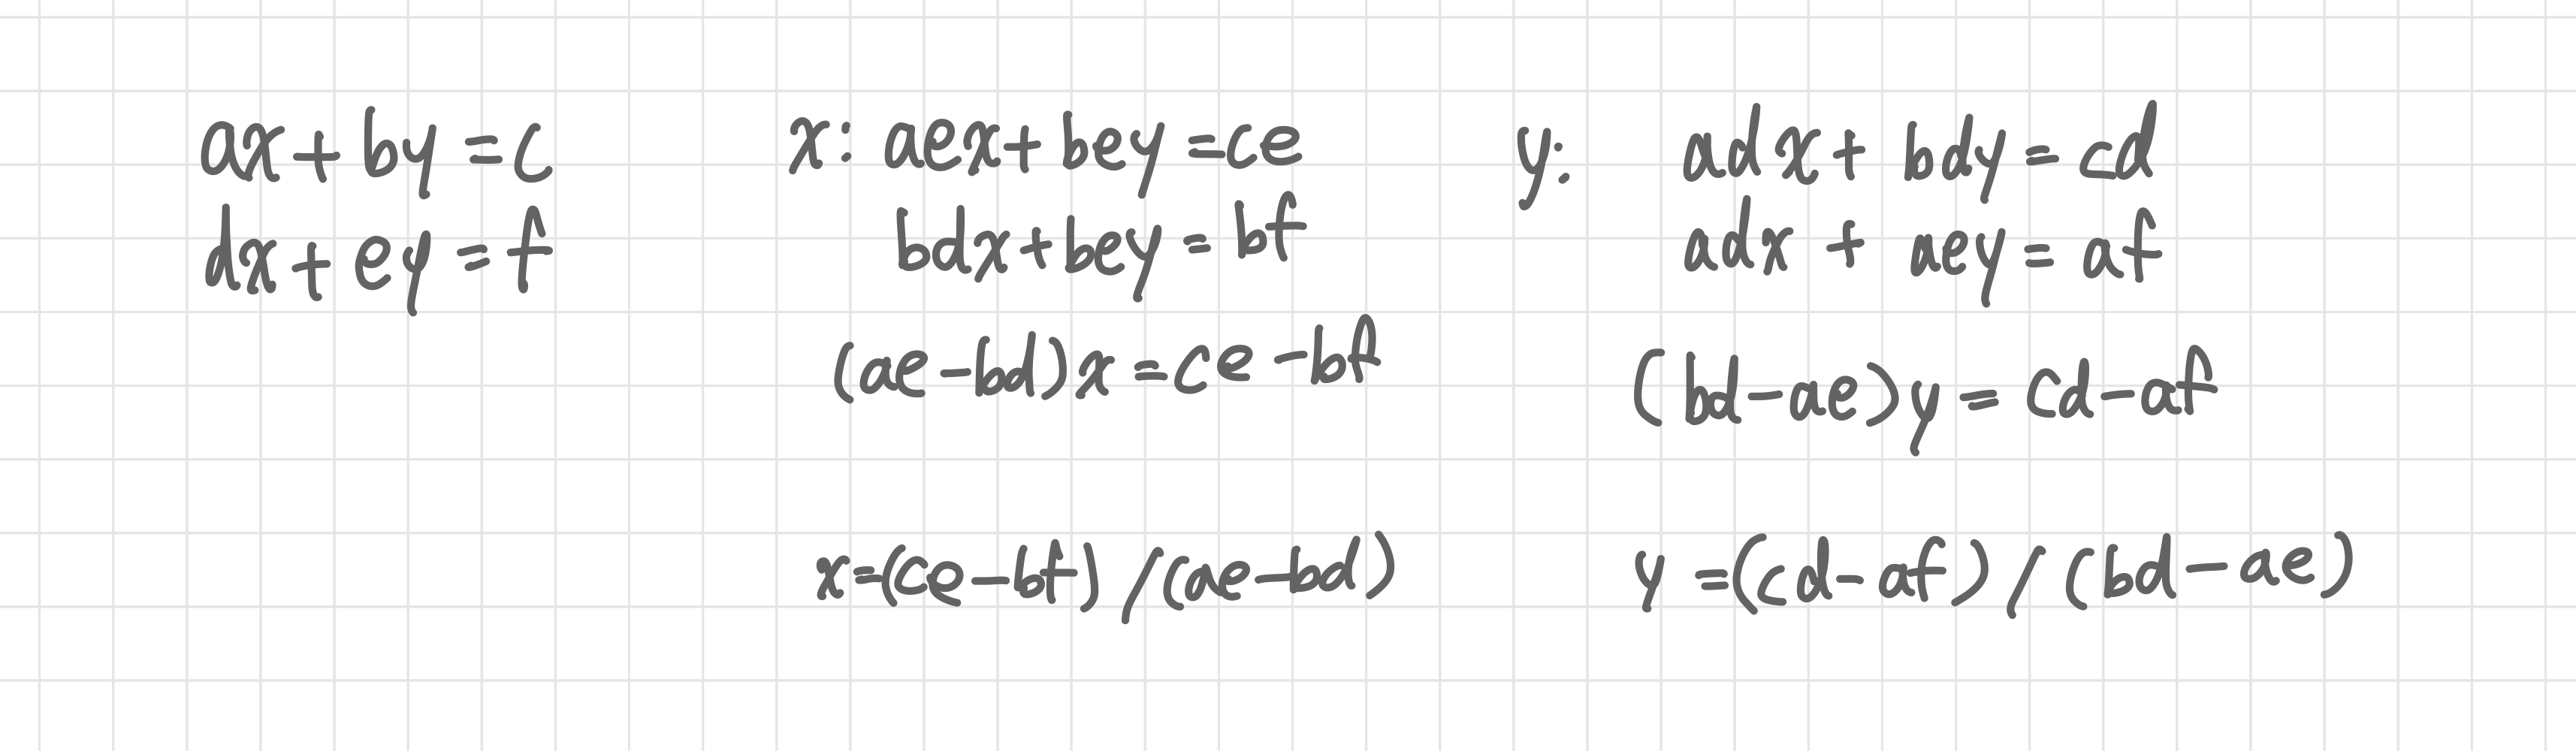 ax+by=c
dx+ey=f
x: aex+bey=ce
bdx+bey=bf
(ae-bd)x=ce-bf
x=(ce-bf)/(ae-bd)
y: adx+bdy=cd
adx+aey=af
(bd-ae)y=cd-af
y=(cd-af)/(bd-ae)